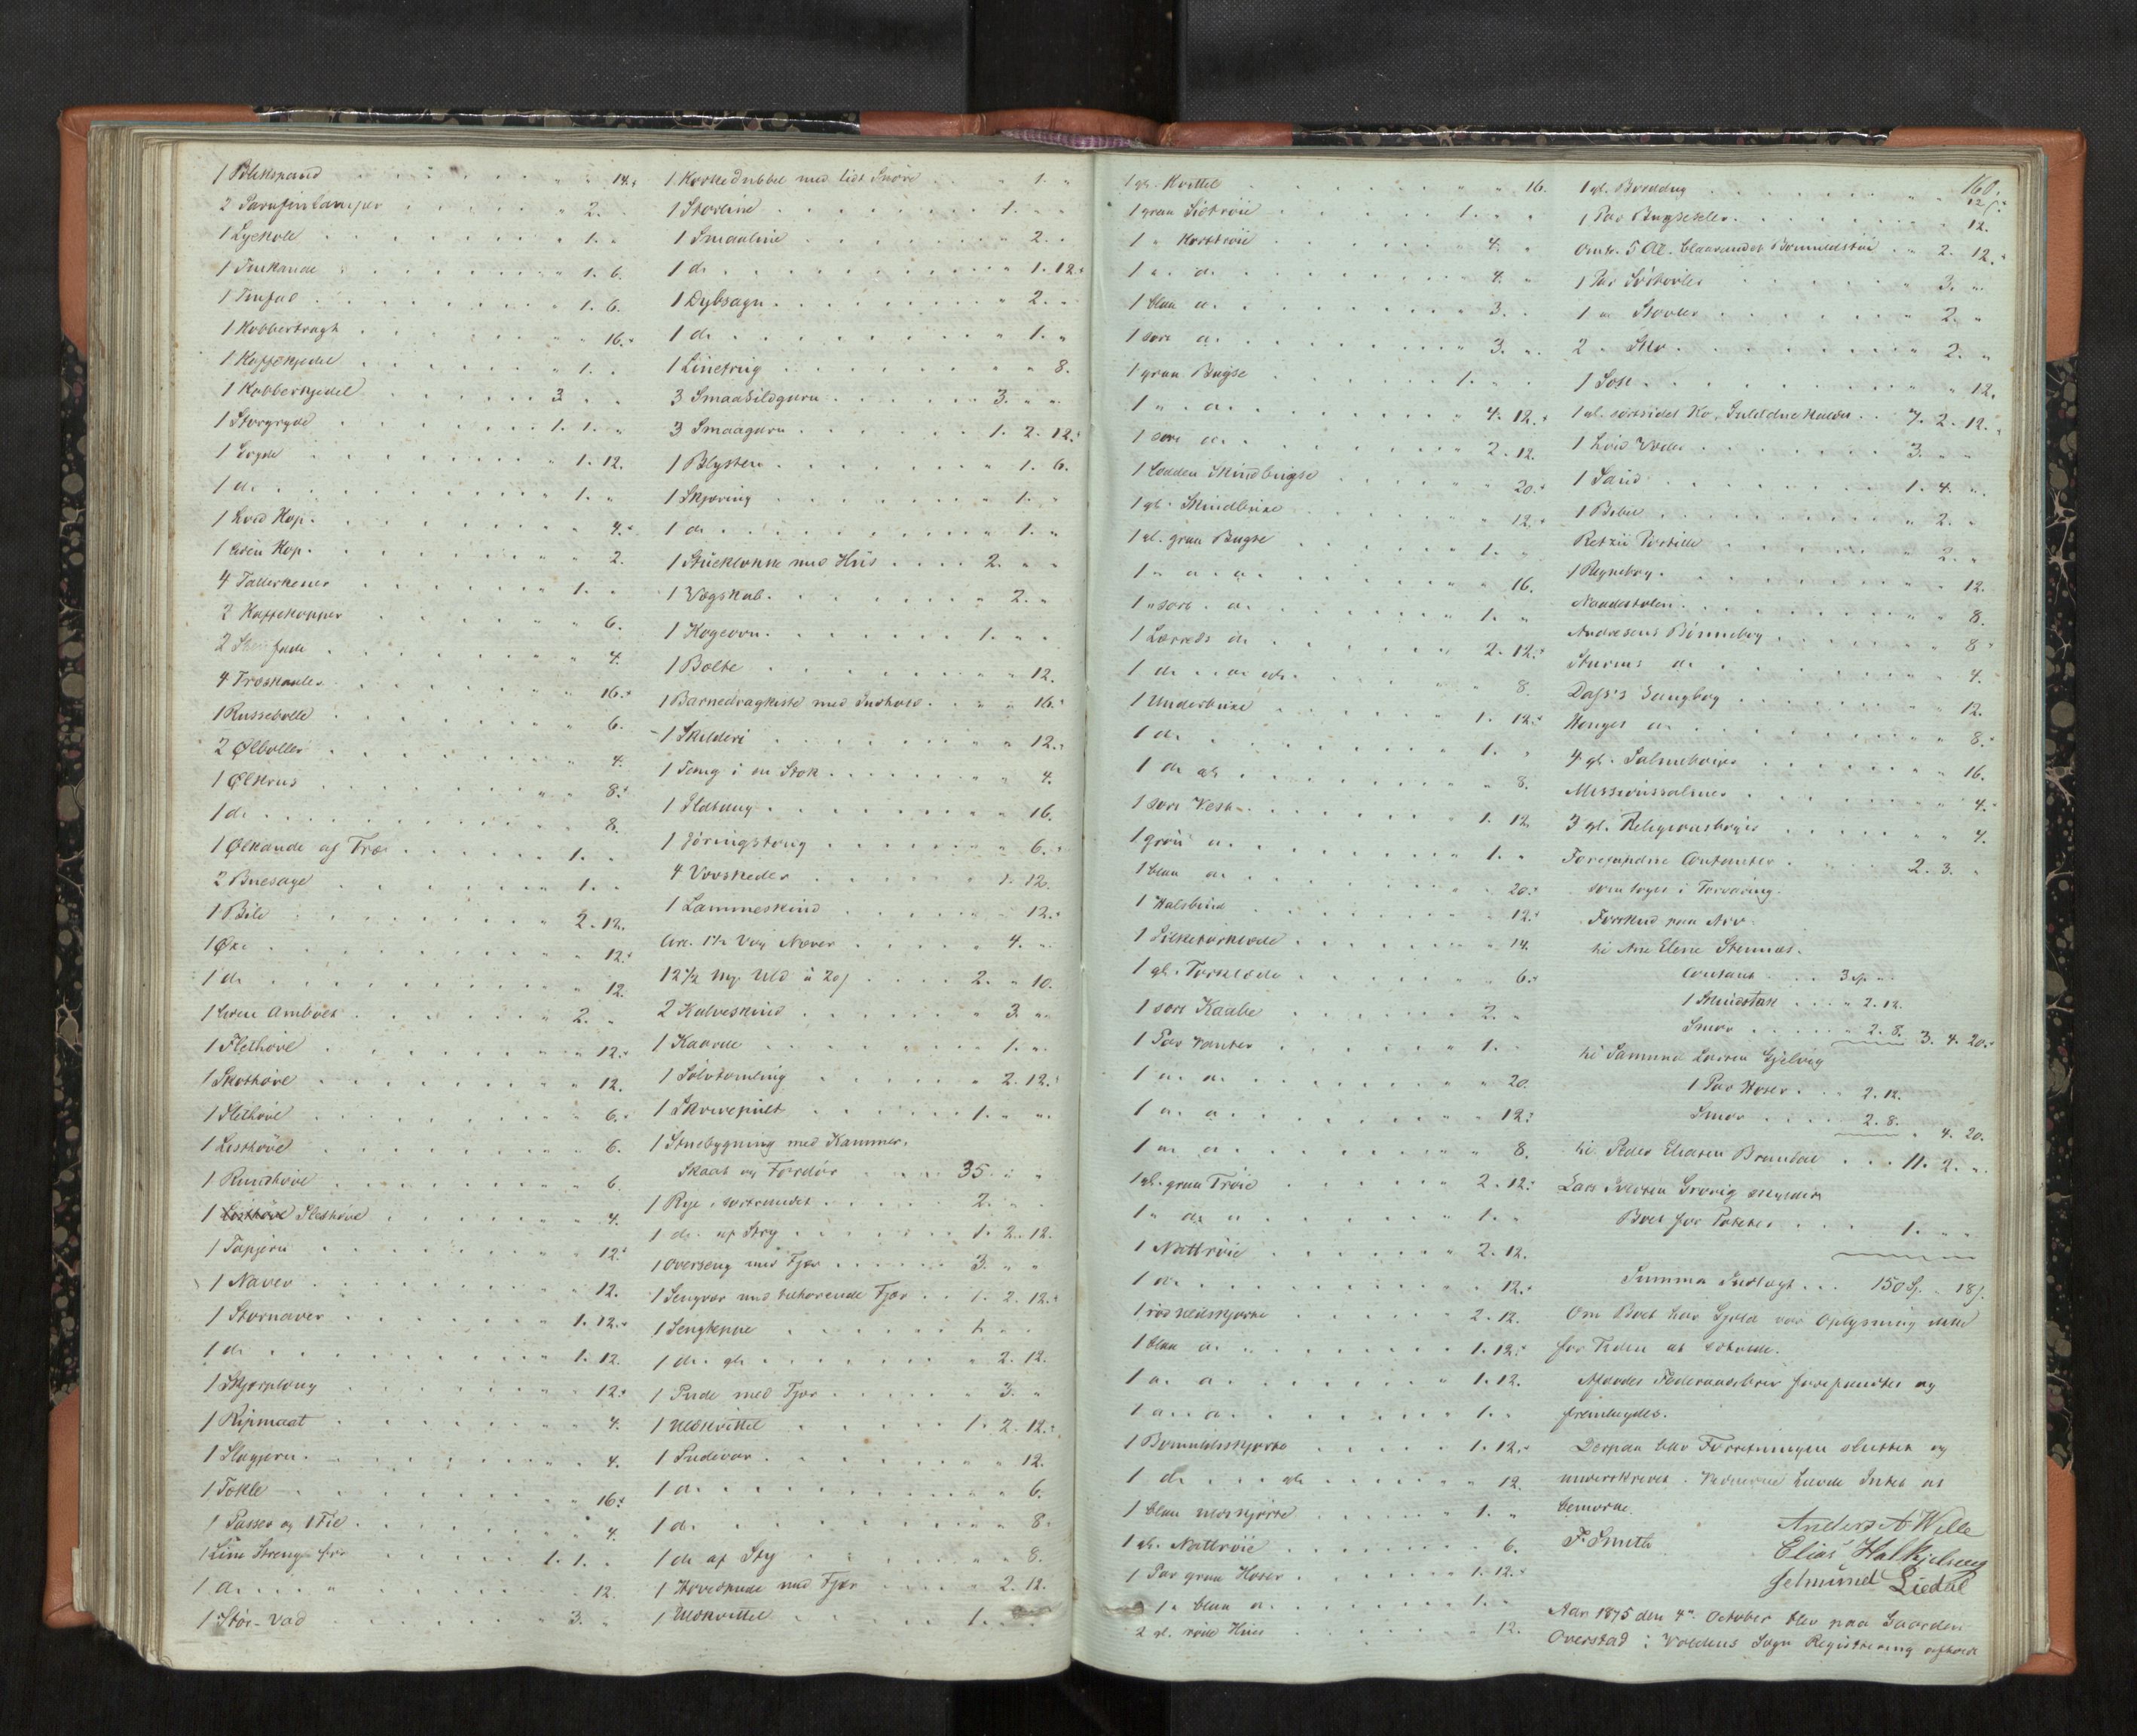 1 Blikspand . . . 14.
2 Parafinlamper . . . 2.
1 Lyskole . . . 1. "
1 Tinkande . . . 1. 6.
1 Tinfad . . . 1. 6.
1 Kobbertragt . . . 16.
1 Kaffekjedel . . . 1. "
1 Kobberkjedel . . . 3. "
1 Storgryde . . . 1. 1. "
1 Gryde . . . 1. 12.
1 do . . . 1. "
1 hvid Kop . . . 4.
1 liden Kop . . . 2.
4 Tallerkener . . . 1. "
2 Kaffekopper . . . 6.
2 . . . 4.
4 Træskaaler . . . 16.
1 Russebolle . . . 6.
2 Ølboller . . . 4.
1 Ølkrus . . . 8.
1 do . . . 8.
1 Ølkande af Træ . . . 1. "
2 Buesage . . . 1. "
1 Bile . . . 2. 12.
1 Øxe . . . 12.
1 do . . . 12.
1 liden Ambolt . . . 2. "
1 Slethøvl . . . 12.
1 Skothøvl . . . 12.
1 Slethøvl . . . 6.
1 Listhøvl . . . 6.
1 Rundhøvl . . . 6.
1 Slethøvl . . . 4.
1 Tapjern . . . 12.
1 Naver . . . 12.
1 Stornaver . . . 1. 12.
1 do . . . 1. 12.
1 Skjærplong . . . 12.
1 Ripmaat . . . 4.
1 Slagjern . . . 4.
1 Toxle . . . 16.
1 Passer og 1 Fil . . . 4.
1 Line Streng . . . 1. 1. "
1 do . . . 12.
1 Stør-Vad . . . 3. "
1 Korkedubbel med lidt Snøre . . . 1. "
1 Storline . . . 1. "
1 Smaaline . . . 2. "
1 do . . . 1. 12.
1 Dybsagn . . . 2. "
1 do . . . 1. "
1 Linetrug . . . 8.
3 Smaasildgarn . . . 3. " "
3 Smaagarn . . . 1. 2. 12.
1 Blysten . . . 1. 6.
1 Skjæring . . . 1. "
1 do . . . 1. "
1 Stueklokke med Hus . . . 2. " "
1 Vægskab . . . 2. "
1 Kogeovn . . . 1. " "
1 Balte . . . 12.
1 Barnedragkiste med Indhold . . . 16.
1 Skilderi . . . 12.
1 Tang i en Stok . . . 4.
1 Ildtang . . . 16.
1 Jøringstong . . . 6.
4 Vovskeder . . . 1. 12.
1 Lammeskind . . . 12.
Circ. 1½ Vog Næver . . . 4. "
12½ Mp. Uld a 20 s . . . 2. " 10.
2 Kalveskind . . . 3. "
1 Kaarde . . . 1. "
1 Sølvtomling . . . 2. 12.
1 Skrivepult . . . 1. " "
1 Stuebygning med Kammer,
Skaat og Fordør . . . 35. " "
1 Rye, sortrandet . . . 2. " "
1 do af Stry . . . 1. 2. 12.
1 Overseng med Fjær . . . 3. " "
1 Sengvar med tilhørende Fjær . . . 1. 2. 12.
1 Sengteppe . . . "
1 do gl. . . . 2. 12.
1 Pude med Fjær . . . 3. "
1 Uldkvittel . . . 1. 2. 12.
1 Pudevar . . . 12.
1 do . . . 6.
1 do . . . 8.
1 do af Stry . . . 8.
1 Hovedpude med Fjær . . . 2. 12.
1 Uldkvittel . . . 1. "
160.
1 gl. Kvittel . . . 16.
1 graa Sidtrøie . . . 1. " "
1 " Korttrøie . . . 4. "
1 " do . . . 4. "
1 blaa do . . . 3. "
1 sort do . . . 3. "
1 graa Bugse . . . 1. " "
1 " do . . . 4. 12.
1 sort do . . . 2. 12.
1 lodden Skindbugse . . . 20.
1 gl. Skindbuxe . . . 12.
1 gl. graa Bugse . . . 1. "
1 " do do . . . 16.
1 " sort do . . . 1. "
1 Lærreds do . . . 2. 12.
1 do do gl. . . . 8.
1 Underbuxe . . . 1. 12.
1 do . . . 1. "
1 do gl. . . . 8.
1 sort Vest . . . 1. 12.
1 grøn do . . . 1. "
1 blaa do . . . 20.
1 Halsbind . . . 12.
1 Silketørklæde . . . 14.
1 gl. Tørklæde . . . 6.
1 sort Kaabe . . . 2. "
1 Par Vanter . . . 1. "
1 do do . . . 20.
1 do do . . . 12.
1 do do . . . 8.
1 gl. graa Trøie . . . 2. 12.
1 " do do . . . 1. "
1 Nattrøie . . . 2. 12.
1 do . . . 12.
1 rød Uldskjorte . . . 2. 12.
1 blaa do . . . 1. 12.
1 do do . . . 1. 12.
1 do do . . . 1. "
1 Bomuldsskjorte . . . 1. 12.
1 do gl. . . . 12.
1 blaa Uldskjorte . . . 1. "
1 gl. Nattrøie . . . 6.
1 Par graa Hoser . . . 1. 12.
1 " blaa do . . . 1. "
2 gl. røde Huer . . . 12.
1 gl. Broddug . . . 12 s.
1 Par Bugseseler . . . 12.
Omtr. 5 Al. blaarandet Bomuldstøi . . . 2. 12.
1 Par Søstøvler . . . 3. "
1 " Støvler . . . 2. "
2 " Sko . . . 2. "
1 Lose . . . 12.
1 gl. sortsidet Ko, Guldene kaldet . . . 7. 2. 12.
1 hvid Væder . . . 3. "
1 Saud . . . 1. 4. "
1 Bibel . . . 2. "
Retzii Postille . . . 2. "
1 Regnebog . . . 12.
Naadestolen . . . 8.
Andresens Bønnebog . . . 8.
Sturms do . . . 4.
Dass's Sangbog . . . 12.
Hauges do . . . 8.
4 gl. Salmebøger . . . 16.
Missionssalmer . . . 4.
3 gl. Religionsbøger . . . 4.
Forefundne Contanter . . . 2. 3. "
som toges i Forvaring.
Forskud paa Arv:
til Ane Elene Stennes.
Contant . . . 3 Sp. "
1 Skindstak . . . 2. 12.
Smør . . . 2. 8. 3. 4. 20.
til Samund Larsen Gjelvig
1 Par Hoser . . . 2. 12.
Smør . . . 2. 8. " 4. 20.
til Peder Eliasen Brandal . . . 11. 2. "
Lars Iversen Grovig skylder
Boet for Poteter . . . 1. " "
Summa Indtægt . . . 150 Sp. " 18 s.
Om Boet har Gjeld var Oplysning ikke
for Tiden at erholde.
Afdødes Føderaadsbrev forefandtes og
fremlagdes.
Derpaa blev Forretningen sluttet og
underskrevet. Vidnerne havde Intet at
bemærke.
F. Smith Anders A Welle
Elias Halkjelsvig
Selmund Liedal
Aar 1875 den 4de October blev paa Gaarden
Overstad i Voldens Sogn Registrering afholdt